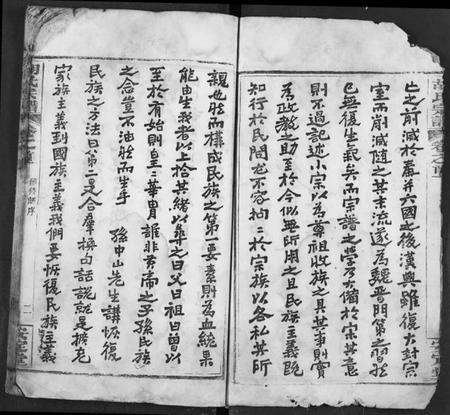 亡之前減於秦并六國之後漢興雖復大封宗
室而削減隨之其末流遂為魏晉門第之習於
已無復生氣矣而宗譜之掌乃大備於宗其意
則不過記述小宗以為尊祖收族之具其事則實
為政教之助至於今似無所用之且民族主義既
知行於民間尤不容拘拘於宗族以各私其所
親也然而構成民族之第一要素則為血統果
能由生我者以上推其緒以尋之曰父曰祖曰曾以
至於有始則皇皇華冑誰非黃帝之子孫民族
之念豈不油然而生乎 孫中山先生講恢復
民族之方法曰第二是合羣換句話說就是擴充
家族主義到國族主義我們要恢復民族主義
胡氏宗譜
卷之首